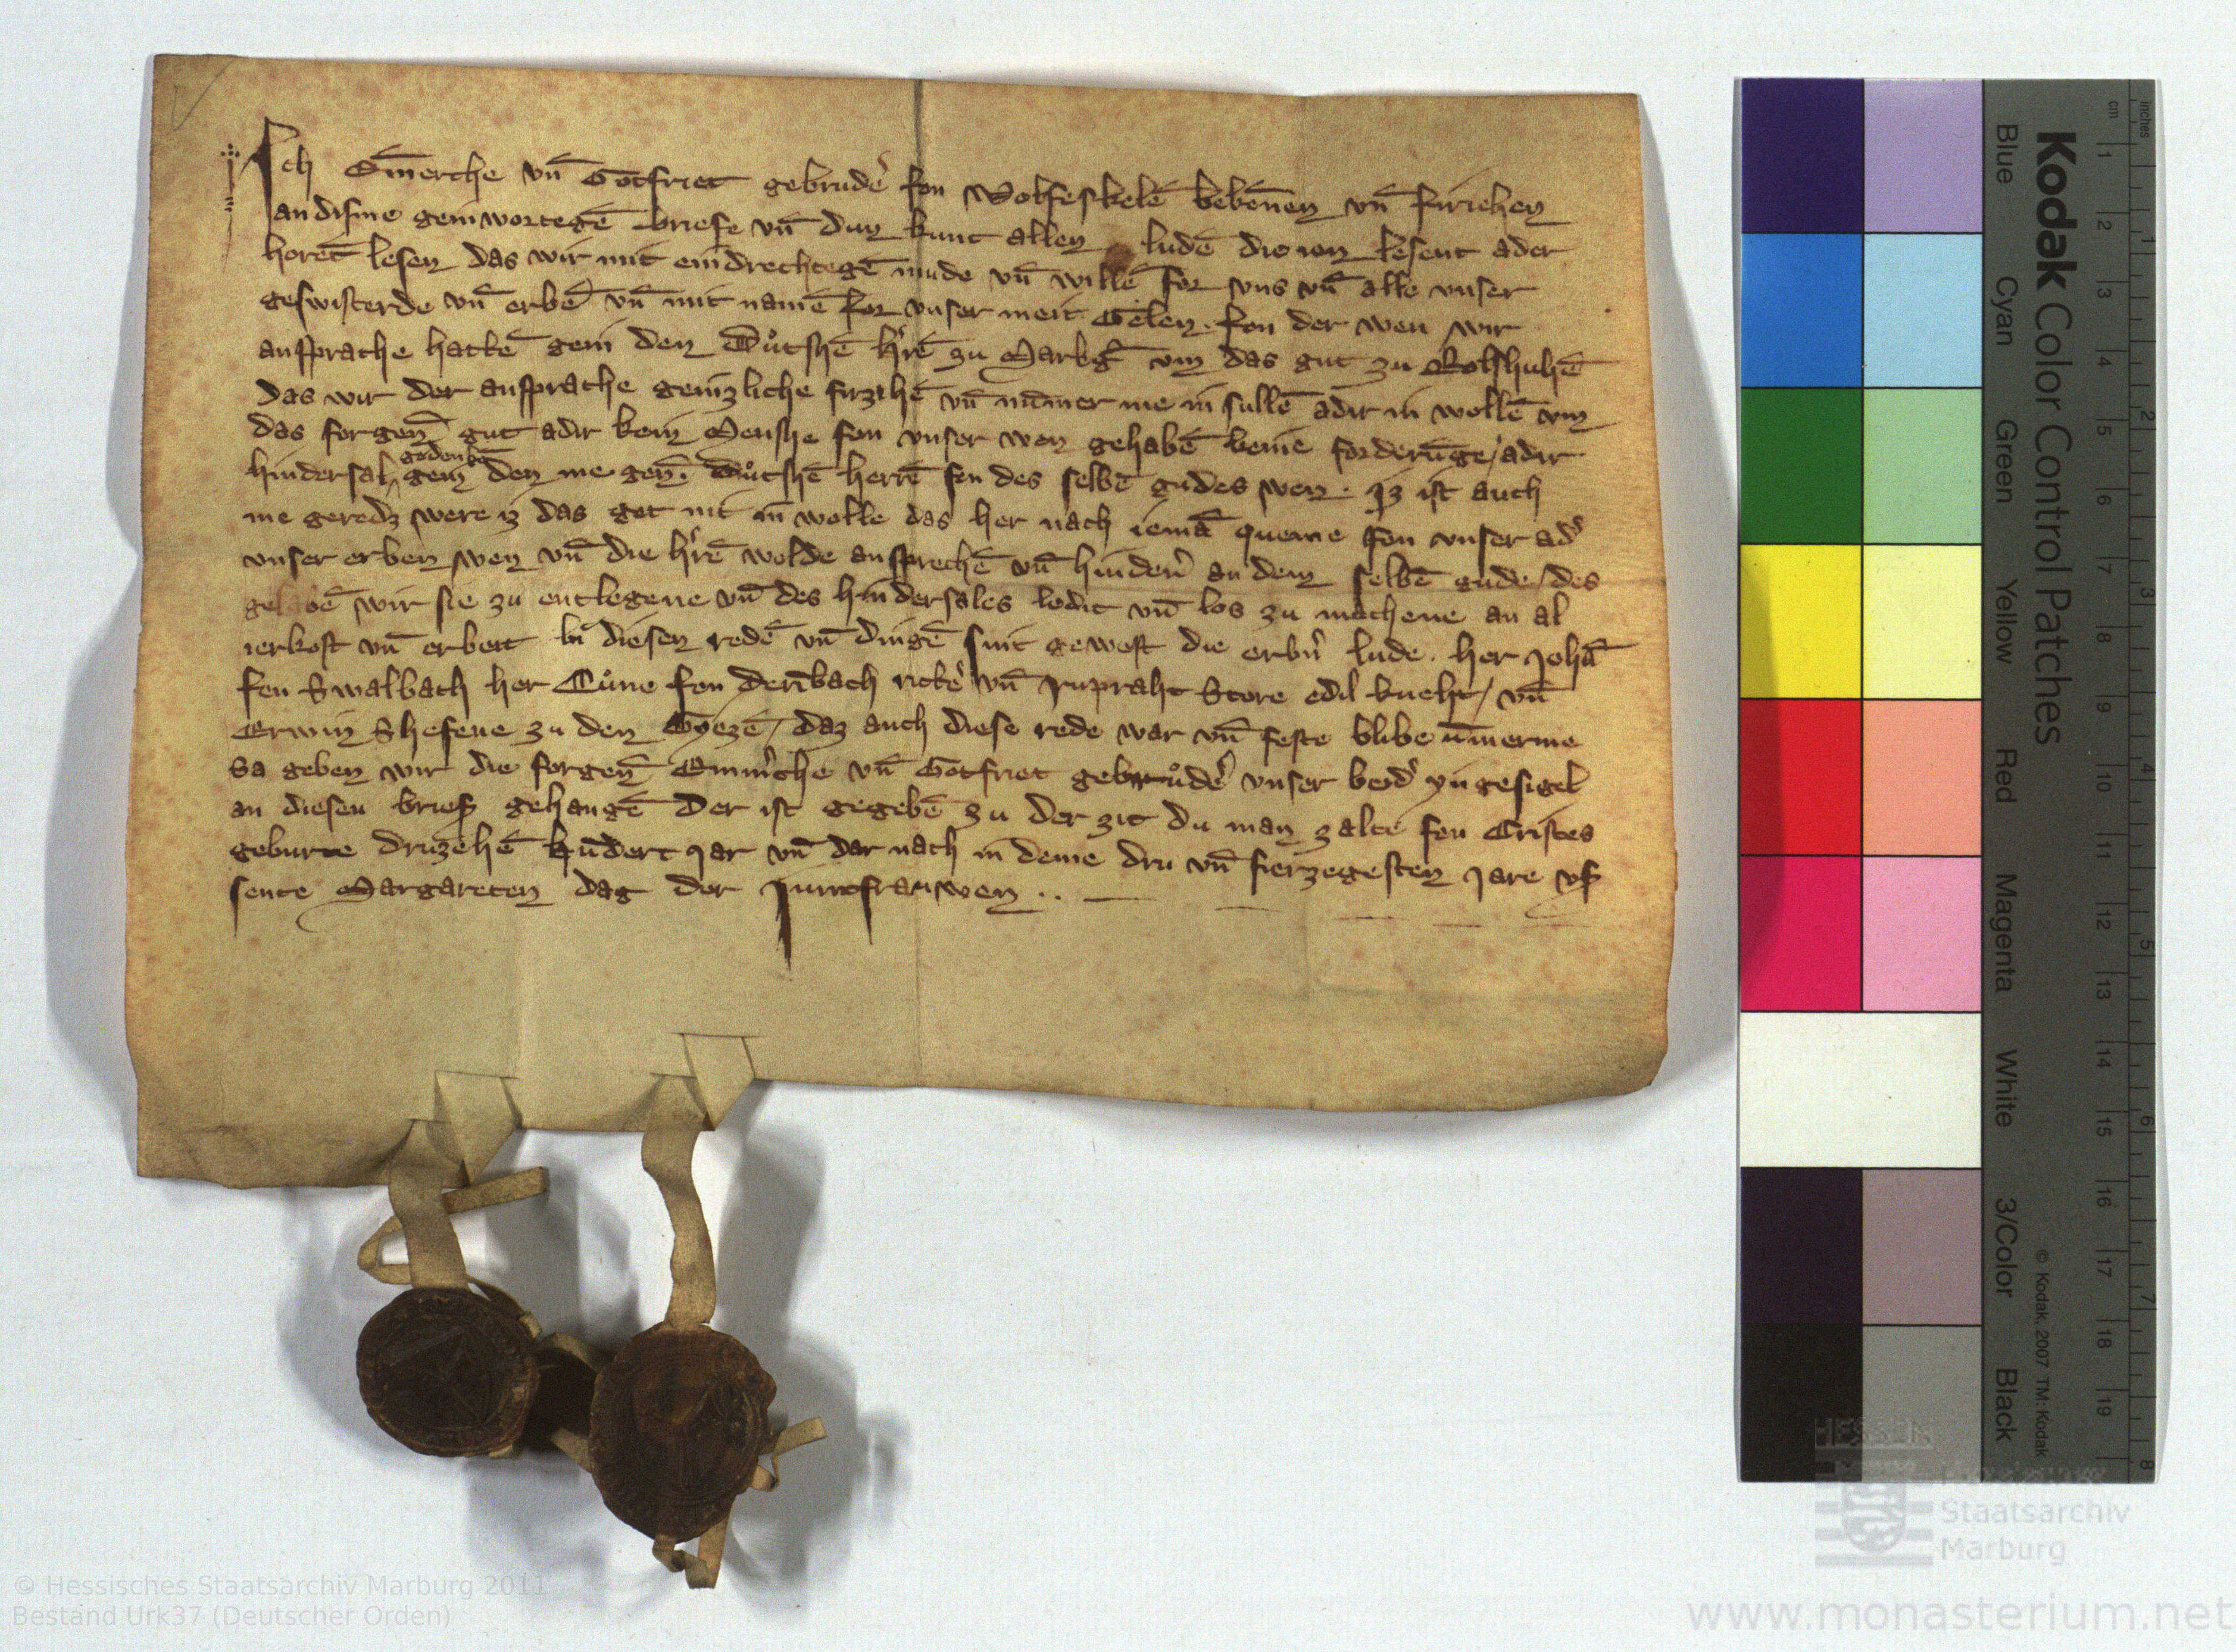 Ich Em̅erche vn̅ Gotfriet gebrudẻ fon Wolfeskelē bekēnen vn̅ firiehen
an disme geinwortegē briefe vn̅ dun kunt allen ludē die ien lesent ader
horēt lesen das wir mit eindrechtegē mude vn̅ willē for vns vn̅ alle vnser
geswisterde vn̅ erbē vn̅ mit namē for vnser meit Gēlen. fon der wen wir
ansprache hattē gein den Důtshē hrē zu Marbg vm das gut zu Rolshuhē
das wir der ansprache geinzliche firzihē vn̅ nūmer me in sullē adir in wollē vm
das forgen̅ gut adir kein Menshe fon vnser wen gehabē keine forderūge / adir
hindersal gedenke gein den me gen̅. Důtshē herrē fon des selbē gudes wen. Iz ist auch
me geredz were iz das got nit in wolle das her nach iemā queme fon vnser adˀ
vnser erben wen vn̅ die hrē wolde ansprechē vn̅ hindern an dem selbē gude / des
gelabē wir sie zu entlegene vn̅ des hindersales ledic vn̅ los zu machene an al
ierkost vn̅ erbeit bi diesen redē vn̅ dingē sint gewest die erbn lude. her Johā
fon Swalbach her Cůne fon derēbach rittˀ vn̅ Rupraht Store edil kneht / vn̅
Erwin Shefene zu den Gyezē / daz auch diese rede war vn̅ feste blibe ūmerme
sa geben wir die forgen̅ Emmˀche vn̅ Gotfriet gebrůdˀ vnser beidˀ yngesigel
an diesen brief gehangē Der ist gegebē zu der zit du man zalte fon Cristes
geburte druzehē hūdert Jar vn̅ dar nach in deme dru vn̅ fierzegesten Jare vf
sente Margareten dag der Juncfrauwen ..
Kodak Color Control Patches
Blue Cyan Green Yellow Red Magenta White 3/Color Black
© Kodak, 2007 TM: Kodak
cm 1 2 3 4 5 6 7 8 9 10 11 12 13 14 15 16 17 18 19
inches 1 2 3 4 5 6 7 8
HESSEN
Hessisches
Staatsarchiv
Marburg
© Hessisches Staatsarchiv Marburg 2011
Bestand Urk37 (Deutscher Orden)
www.monasterium.net